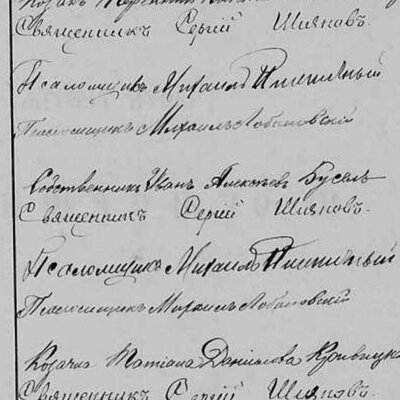 Козакъ
Священникъ Сергій Шияновъ.
Псаломщикъ Михаилъ Пшеничный
Псаломщикъ Михаилъ Лобановскій
Собственникъ Иванъ Алексѣевъ Бусель
Священникъ Сергій Шияновъ.
Псаломщикъ Михаилъ Пшеничный
Псаломщикъ Михаилъ Лобановскій
Козачка Татіана Данилова Кривицка
Священникъ Сергій Шияновъ.